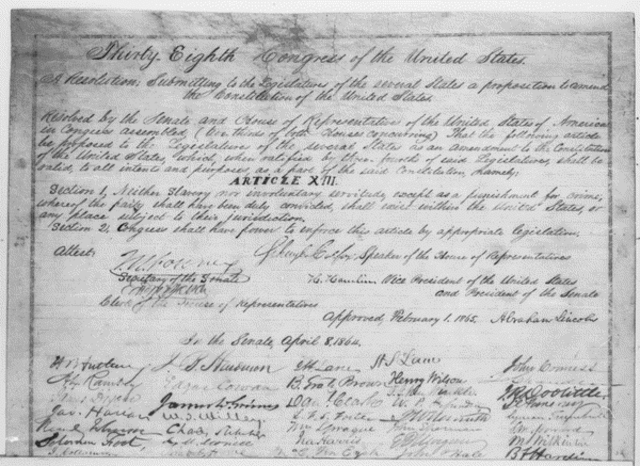 Thirty-Eighth Congress of the United States.
A Resolution: Submitting to the Legislatures of the several States a proposition to amend
the Constitution of the United States.
Resolved by the Senate and House of Representatives of the United States of America
in Congress assembled, (two thirds of both Houses concurring) That the following article
be proposed to the Legislatures of the several States as an amendment to the Constitution
of the United States, which, when ratified by three-fourths of said Legislatures shall be
valid, to all intents and purposes, as a part of the said Constitution, namely:
ARTICLE XIII.
Section 1, Neither Slavery nor involuntary servitude, except as a punishment for crime,
whereof the party shall have been duly convicted, shall exist within the United States, or
any place subject to their jurisdiction.
Section 2, Congress shall have power to enforce this article by appropriate legislation.
Attest:
Schuyler Colfax, Speaker of the House of Representatives
J. W. Forney
Secretary of the Senate
H. Hamlin Vice President of the United States
and President of the Senate
Clerk of the House of Representatives
Approved, February 1, 1865. Abraham Lincoln
In the Senate, April 8, 1864.
H S Lane
John Conness
Edgar Cowan
Henry Wilson
James W. Grimes
J R Doolittle
Jas. Harlan
Wm Sprague
Solomon Foot,
Ira Harris